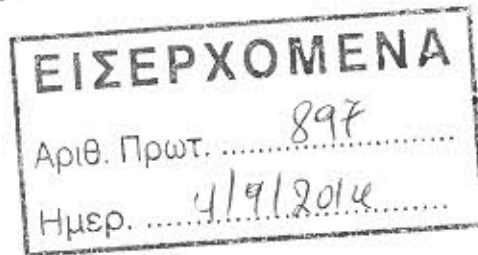 ΕΙΣΕΡΧΟΜΕΝΑ
Αριθ. Πρωτ. 897
Ημερ. 4/9/2014